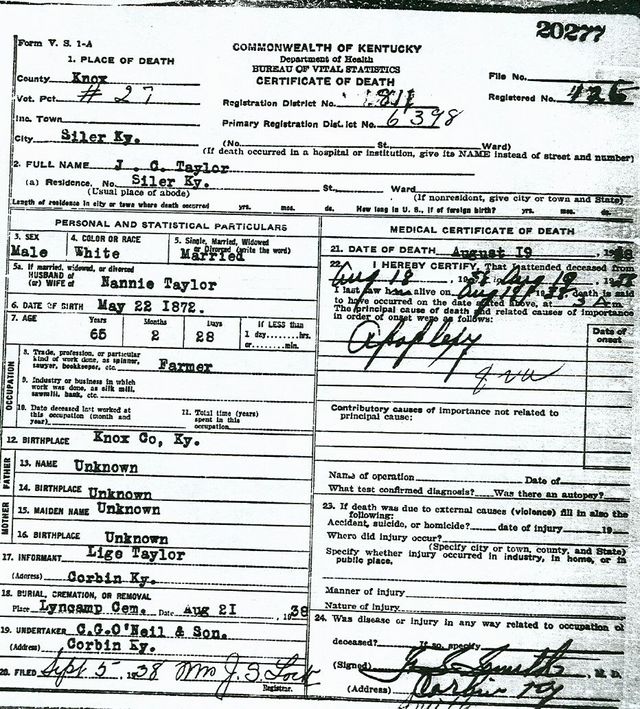 20277
Form V. S. 1-A
COMMONWEALTH OF KENTUCKY
Department of Health
BUREAU OF VITAL STATISTICS
CERTIFICATE OF DEATH
1. PLACE OF DEATH
County Knox
Vot. Pct. # 27
Inc. Town
City Siler Ky.
File No.
Registered No. 426
Registration District No.
Primary Registration District No. 6398
(No. St. Ward)
(If death occurred in a hospital or institution, give its NAME instead of street and number)
2. FULL NAME J. C. Taylor
(a) Residence. No. Siler Ky. St. Ward
(Usual place of abode) (If nonresident, give city or town and State)
Length of residence in city or town where death occurred yrs. mos. ds. How long in U. S., if of foreign birth? yrs. mos. ds.
PERSONAL AND STATISTICAL PARTICULARS
3. SEX Male
4. COLOR OR RACE White
5. Single, Married, Widowed or Divorced (write the word) Married
5a. If married, widowed, or divorced
HUSBAND of
(or) WIFE of Nannie Taylor
6. DATE OF BIRTH May 22 1872.
7. AGE Years 65 Months 2 Days 28
If LESS than
1 day, hrs.
or min.
OCCUPATION
8. Trade, profession, or particular
kind of work done, as spinner,
sawyer, bookkeeper, etc. Farmer
9. Industry or business in which
work was done, as silk mill,
sawmill, bank, etc.
10. Date deceased last worked at
this occupation (month and
year)
11. Total time (years)
spent in this
occupation
12. BIRTHPLACE Knox Co, Ky.
FATHER
13. NAME Unknown
14. BIRTHPLACE Unknown
MOTHER
15. MAIDEN NAME Unknown
16. BIRTHPLACE Unknown
17. INFORMANT Lige Taylor
(Address) Corbin Ky.
18. BURIAL, CREMATION, OR REMOVAL
Place Lyncamp Cem. Date Aug 21, 1938
19. UNDERTAKER C.G.O'Neil & Son.
(Address) Corbin Ky.
20. FILED Sept 5 1938 Mrs J. S. Lock
Registrar.
MEDICAL CERTIFICATE OF DEATH
21. DATE OF DEATH August 19, 1938
22. I HEREBY CERTIFY, That I attended deceased from
Aug 18, 1938, Aug 19, 1938
I last saw him alive on Aug 19 1938, death is said
to have occurred on the date stated above, at 3 A.m.
The principal cause of death and related causes of importance
in order of onset were as follows:
Date of
onset
Apoplexy
Contributory causes of importance not related to
principal cause:
Name of operation Date of
What test confirmed diagnosis? Was there an autopsy?
23. If death was due to external causes (violence) fill in also the
following:
Accident, suicide, or homicide? date of injury 19
Where did injury occur?
(Specify city or town, county, and State)
Specify whether injury occurred in industry, in home, or in
public place.
Manner of injury
Nature of injury
24. Was disease or injury in any way related to occupation of
deceased? If so, specify
(Signed) Smith, M. D.
(Address) Corbin Ky